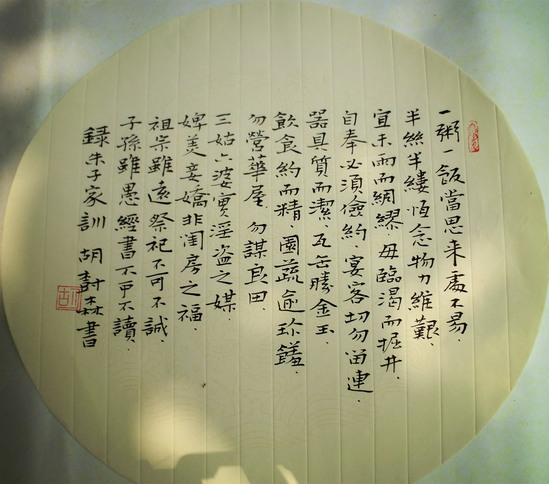 一粥一飯當思来處不易.
半絲半縷恆念物力維艱.
宜未雨而綢繆.毋臨渴而掘井.
自奉必須儉約.宴客切勿留連.
器具質而潔.瓦缶勝金玉.
飲食約而精.園蔬逾珍饈.
勿營華屋.勿謀良田.
三姑六婆實淫盜之媒.
婢美妾嬌非閨房之福
祖宗雖遠祭祀不可不誠.
子孫雖愚經書不可不讀.
錄朱子家訓 胡森書